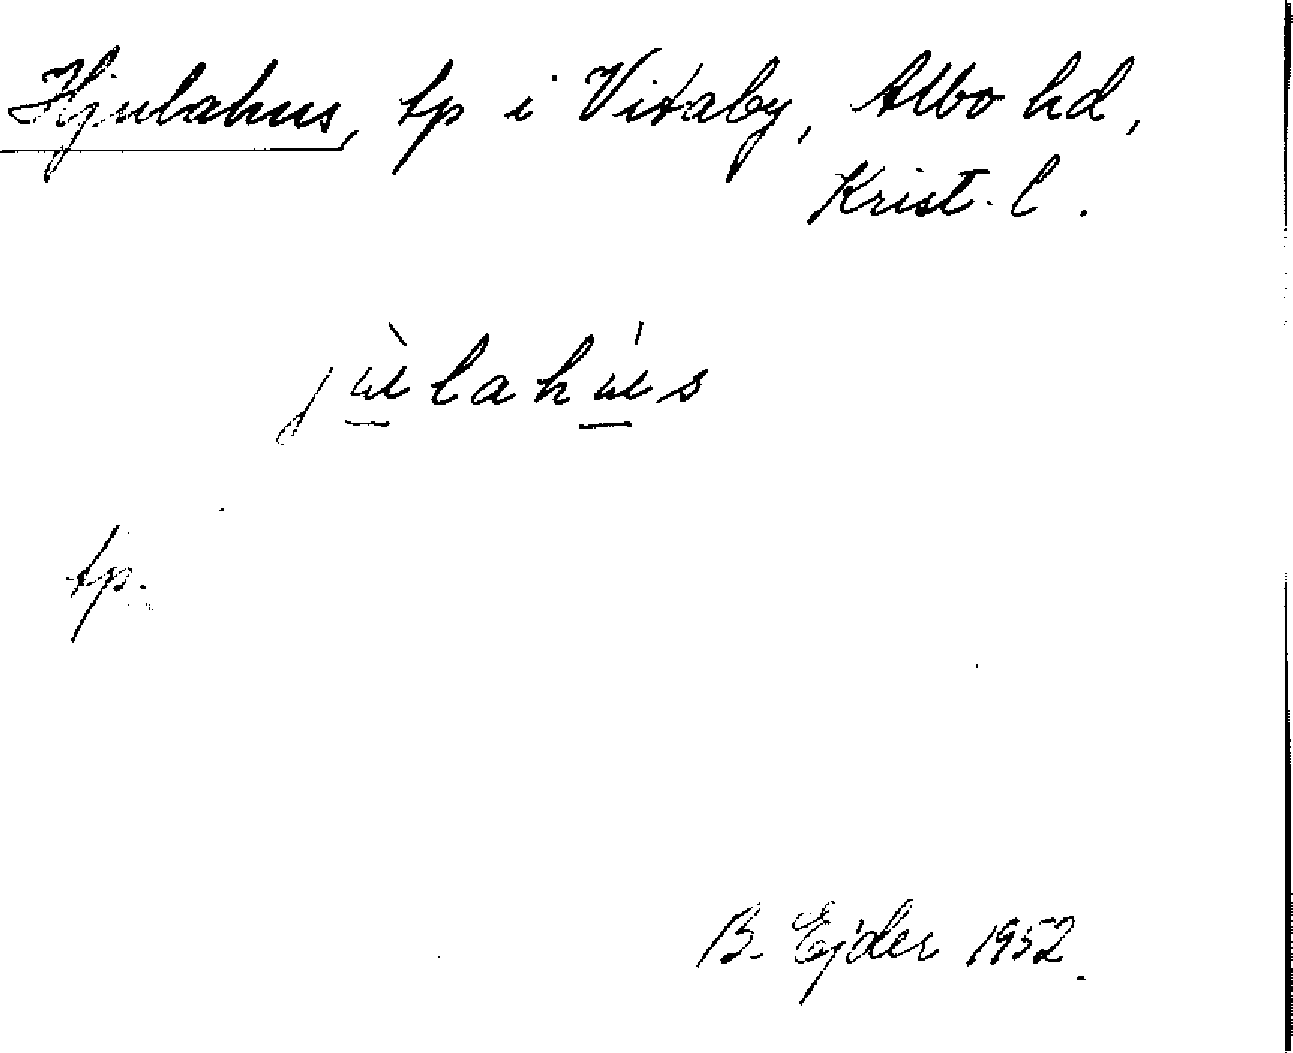 Hjulahus, tp i Vitaby, Albo hd,
Krist. l.
jùlahús
tp.
B. Ejder 1952.